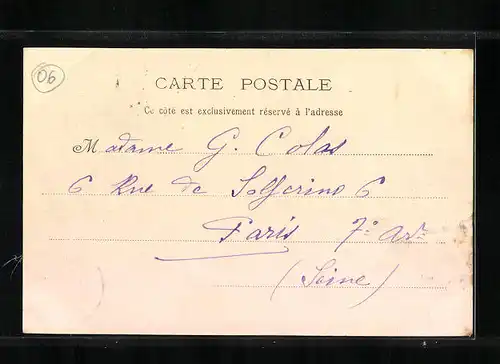 06
CARTE POSTALE
Ce côté est exclusivement réservé à l'adresse
Madame G. Colas
6 Rue de Solferino 6
Paris 7e Ardt
(Seine)